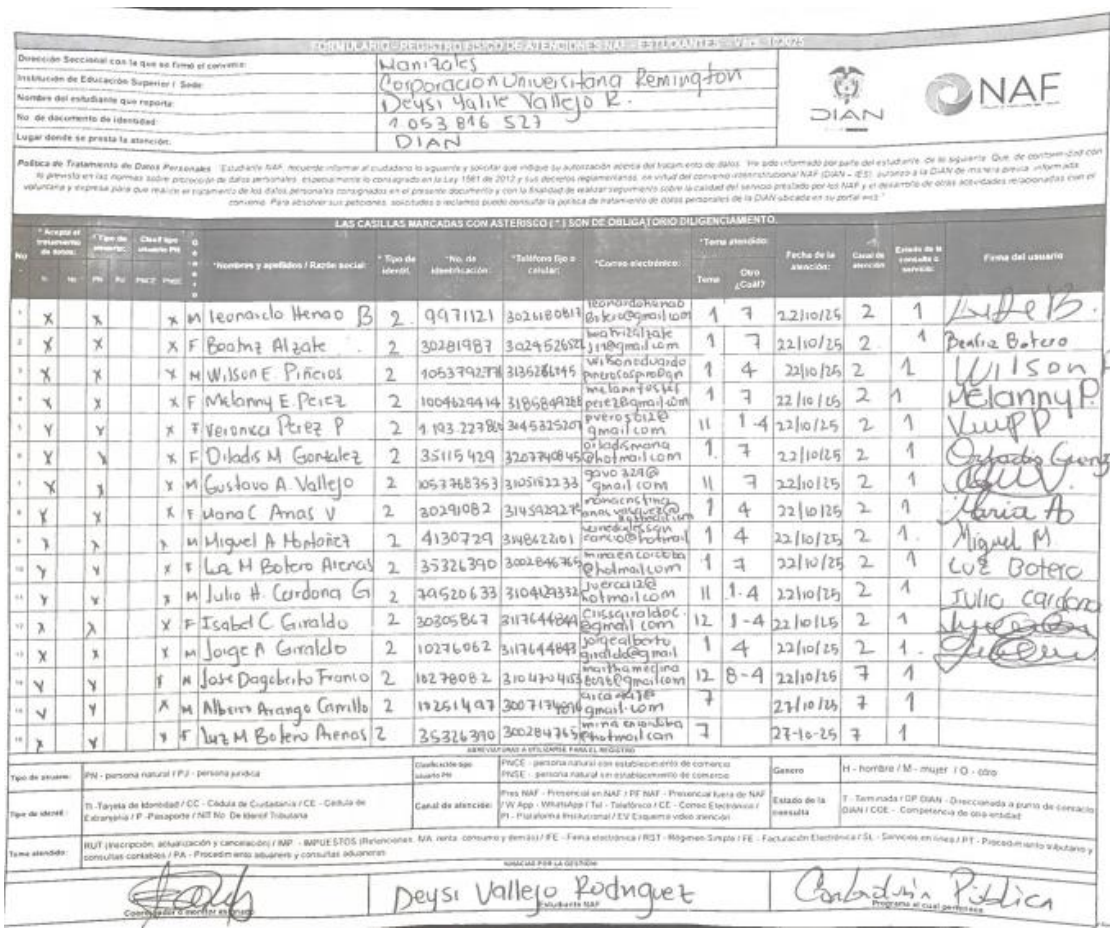 FORMULARIO - REGISTRO FISICO DE ATENCIONES NAF - ESTUDIANTES -
Dirección Seccional con la que se firmó el convenio: Manizales
Institución de Educación Superior / Sede: Corporacion Universitaria Remington
Nombre del estudiante que reporta: Deysi Yalile Vallejo R.
No. de documento de identidad: 1 053 816 527
Lugar donde se presta la atención: DIAN
DIAN
NAF
Política de Tratamiento de Datos Personales "Estudiante NAF, recuerde informar al ciudadano lo siguiente y solicitar que indique su autorización acerca del tratamiento de datos. "He sido informado por parte del estudiante, de lo siguiente: Que, de conformidad con
lo previsto en las normas sobre protección de datos personales, especialmente lo consagrado en la Ley 1581 de 2012 y sus decretos reglamentarios, en virtud del convenio interinstitucional NAF (DIAN - IES), autorizo a la DIAN de manera previa, informada,
voluntaria y expresa para que realice el tratamiento de los datos personales consignados en el presente documento y con la finalidad de realizar seguimiento sobre la calidad del servicio prestado por los NAF y el desarrollo de otras actividades relacionadas con el
convenio. Para absolver sus peticiones, solicitudes o reclamos puede consultar la política de tratamiento de datos personales de la DIAN ubicada en su portal web."
LAS CASILLAS MARCADAS CON ASTERISCO ( * ) SON DE OBLIGATORIO DILIGENCIAMIENTO.
No * Acepta el tratamiento de datos: * Tipo de usuario: Clasif tipo usuario PN Genero *Nombres y apellidos / Razón social: * Tipo de identif. *No. de identificación: *Teléfono fijo o celular: *Correo electrónico: *Tema atendido: Fecha de la atención: Canal de atención Estado de la consulta o servicio: Firma del usuario
PN PJ PNCE PNSE Tema Otro ¿Cuál?
X X X M leonardo Henao B 2. 9971121 3026180817 leonardohenao @gmail.com 1 7 22/10/25 2 1
X X X F Beatriz Alzate 2 30281987 beatrizalzate @gmail.com 1 7 22/10/25 2. 1 Beatriz Botero
X X X M Wilson E. Piñeros 2 wilsoneduardo 1 4 22/10/25 2 1 Wilson
X X X F Melanny E Perez 2 1004629414 @gmail.com 1 7 22/10/25 2 1 Melanny P.
X X X F Veronica Perez P 2 3045325207 gmail.com 11 1-4 22/10/25 2 1
X X X F Diladis M Gonzalez 2 35115429 3207740845 @hotmail.com 1. 7 22/10/25 2 1
X X X M Gustavo A. Vallejo 2 1053768353 3105182233 gmail.com 11 7 22/10/25 2 1
X X X F Maria C Arias V 2 30291082 1 4 22/10/25 2 1 Maria A
X X X M Miguel A Montoñez 2 4130729 3148622101 @hotmail 1 4 22/10/25 2 1. Miguel M
X X X F Luz M Botero Arenas 2 35326390 3002846765 @hotmail.com 1 7 22/10/25 2 1 Luz Botero
X X X M Julio H. Cardona G 2 79520633 3104129332 hotmail.com 11 1.4 22/10/25 2 1 Julio Cardona
X X X F Isabel C Giraldo 2 30305867 3117644844 @gmail.com 12 1-4 22/10/25 2 1
X X X M Jorge A Giraldo 2 10276062 3117644843 jorgealberto giraldo@gmail 1 4 22/10/25 2 1.
X X X M Jose Dagoberto Franco 2 marthamedina @gmail.com 12 8-4 22/10/25 7 1
X X X M Albeiro Arango Carrillo 2 10251497 gmail.com 7 27/10/25 7 1
X X X F Luz M Botero Arenas 2 35326390 3002846765 @hotmail.com 7 27-10-25 7 1
ABREVIATURAS A UTILIZARSE PARA EL REGISTRO
Tipo de usuario: PN - persona natural / PJ - persona jurídica Clasificación tipo usuario PN PNCE - persona natural con establecimiento de comercio
PNSE - persona natural sin establecimiento de comercio Genero H - hombre / M - mujer / O - otro
Tipo de identif. TI -Tarjeta de Identidad / CC - Cédula de Ciudadanía / CE - Cédula de Extranjería / P -Pasaporte / NIT No. De Identif Tributaria Canal de atención: Pres NAF - Presencial en NAF / PF NAF - Presencial fuera de NAF / W App - WhatsApp / Tel - Telefónico / CE - Correo Electrónico / PI - Plataforma Institucional / EV Esquema video atención Estado de la consulta T - Terminada / DP DIAN - Direccionada a punto de contacto DIAN / COE - Competencia de otra entidad
Tema atendido: RUT (Inscripción, actualización y cancelación) / IMP - IMPUESTOS (Retenciones, IVA, renta, consumo y demás) / IFE - Firma electrónica / RST - Régimen Simple / FE - Facturación Electrónica / SL - Servicios en línea / PT - Procedimiento tributario y
consultas contables / PA - Procedimiento aduanero y consultas aduaneras
GRACIAS POR LA GESTIÓN
Deysi Vallejo Rodriguez
Contaduría Pública
Coordinador o monitor asignado Estudiante NAF Programa al cual pertenece